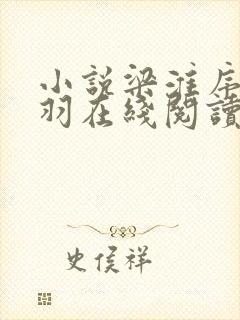 小說梁淮序
羽在綫閱讀
史侯祥